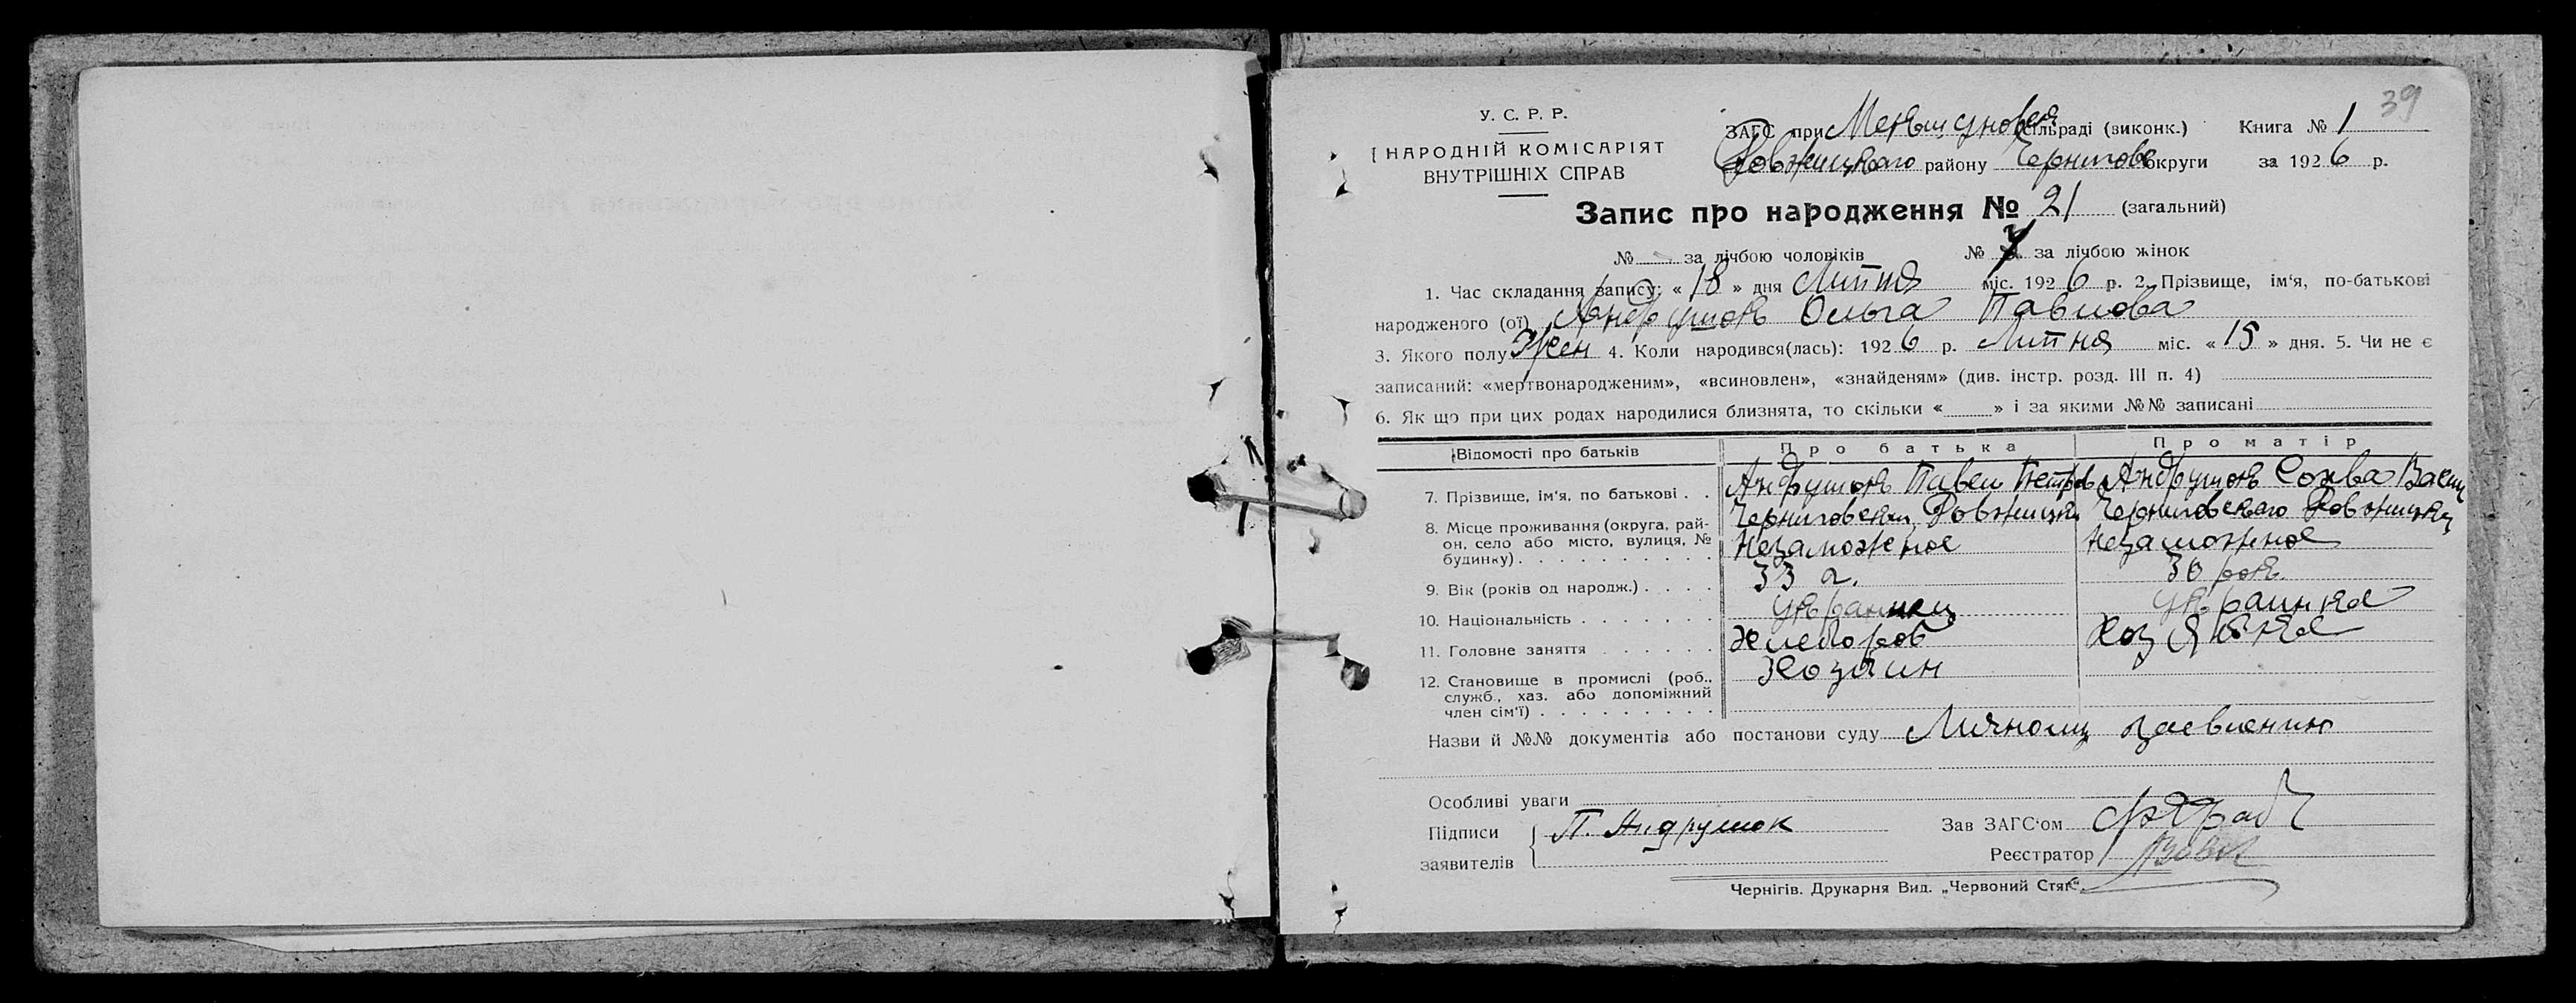 39
У. С. Р. Р.
НАРОДНІЙ КОМІСАРІЯТ
ВНУТРІШНІХ СПРАВ
ЗАГС при сільраді (виконк.) Книга № 1
району Чернигов округи за 1926 р.
Запис про народження № 21 (загальний)
№ за лічбою чоловіків № за лічбою жінок
1. Час складання запису: « 18 » дня Липня міс. 1926 р. 2. Прізвище, ім'я, по-батькові
народженого (ої) Андрушок Ольга Павлова
3. Якого полу Жен 4. Коли народився(лась): 1926 р. Липня міс. « 15 » дня. 5. Чи не є
записаний: «мертвонародженим», «всиновлен», «знайденям» (див. інстр. розд. III п. 4)
6. Як що при цих родах народилися близнята, то скільки « » і за якими №№ записані
Відомості про батьків Про батька Про матір
7. Прізвище, ім'я, по батькові . . Андрушок Павел Петров Андрушок Софва Васил
8. Місце проживання (округа, рай-
он, село або місто, вулиця, №
будинку) . . . . . . . . . . Незаможное Незаможное
9. Вік (років од народж.) . . . . 33 г. 30 рок.
10. Національність . . . . . . . украинец украинка
11. Головне заняття . . . . . . хлебороб Хозяйка
12. Становище в промислі (роб.,
служб., хаз. або допоміжний
член сім'ї) . . . . . . . . . Хозяин
Назви й №№ документів або постанови суду Личному заевлению
Особливі уваги
Підписи П. Андрушок Зав ЗАГС'ом
заявителів Реєстратор
Чернігів. Друкарня Вид. „Червоний Стяг“.